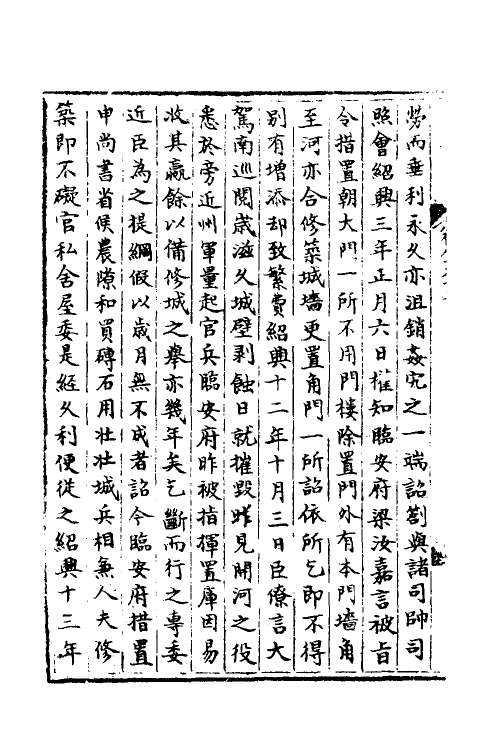 勞而垂利永久亦沮銷姦宄之一端詔劄與諸司帥司
照會紹興三年正月六日權知臨安府梁汝嘉言被旨
令措置朝大門一所不用門樓除置門外有本門墻角
至河亦合修築城墻更置角門一所詔依所乞即不得
别有增添却致繁費紹興十二年十月三日臣僚言大
駕南巡閱歲滋久城壁剥蝕日就摧毁昨見開河之役
悉於旁近州軍量起官兵臨安府昨被指揮置庫因易
收其贏餘以備修城之舉亦幾年矣乞斷而行之專委
近臣為之提綱假以歲月無不成者詔令臨安府措置
申尚書省候農隙和買磚石用壯壯城兵相兼人夫修
築即不礙官私舍屋委是經久利便從之紹興十三年